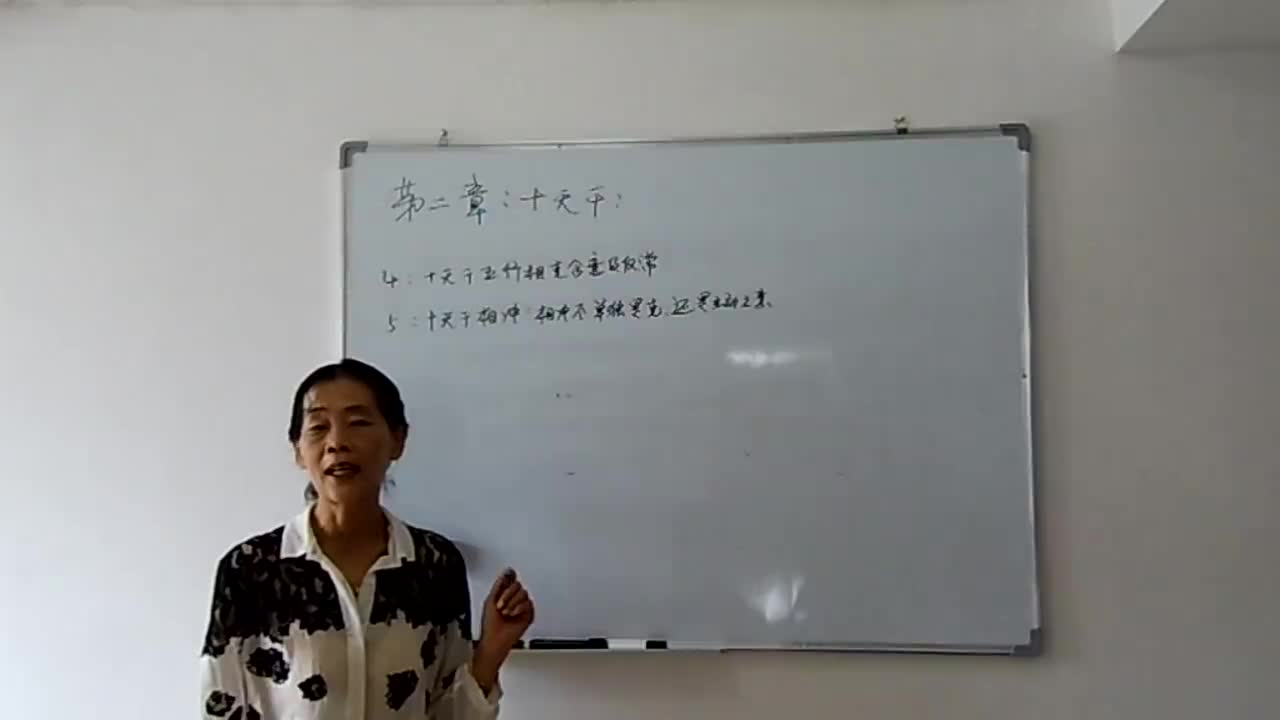 第二章：十天干：
4：十天干五行相克含意及反常
5：十天干相冲：相冲不单独是克，还是互动之意